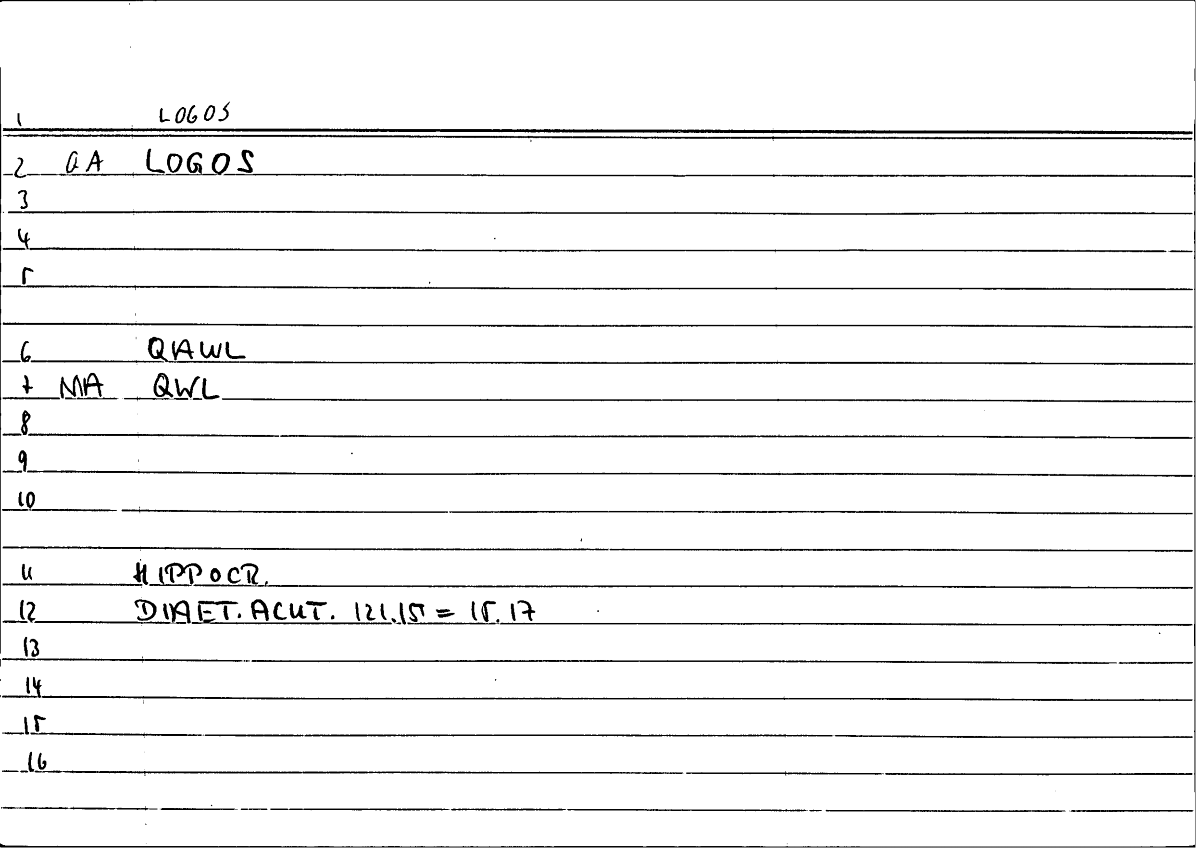 1 LOGOS
2 GA LOGOS
3
4
5
6 QAWL
7 MA QWL
8
9
10
11 HIPPOCR.
12 DIAET. ACUT. 121.15 = 15.17
13
14
15
16